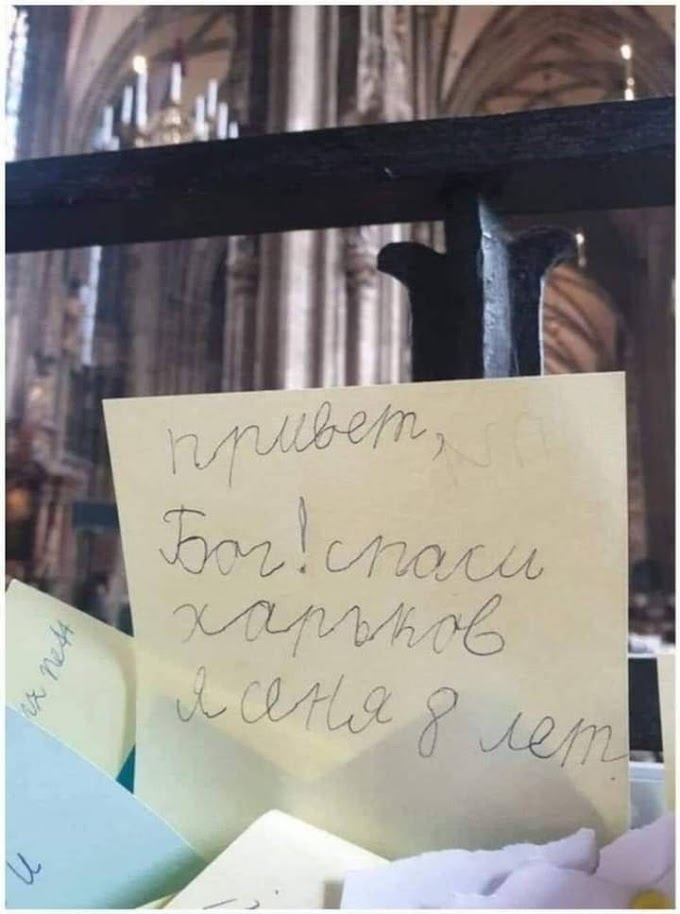 привет,
Бог! спаси
харьков
я сеня 8 лет.